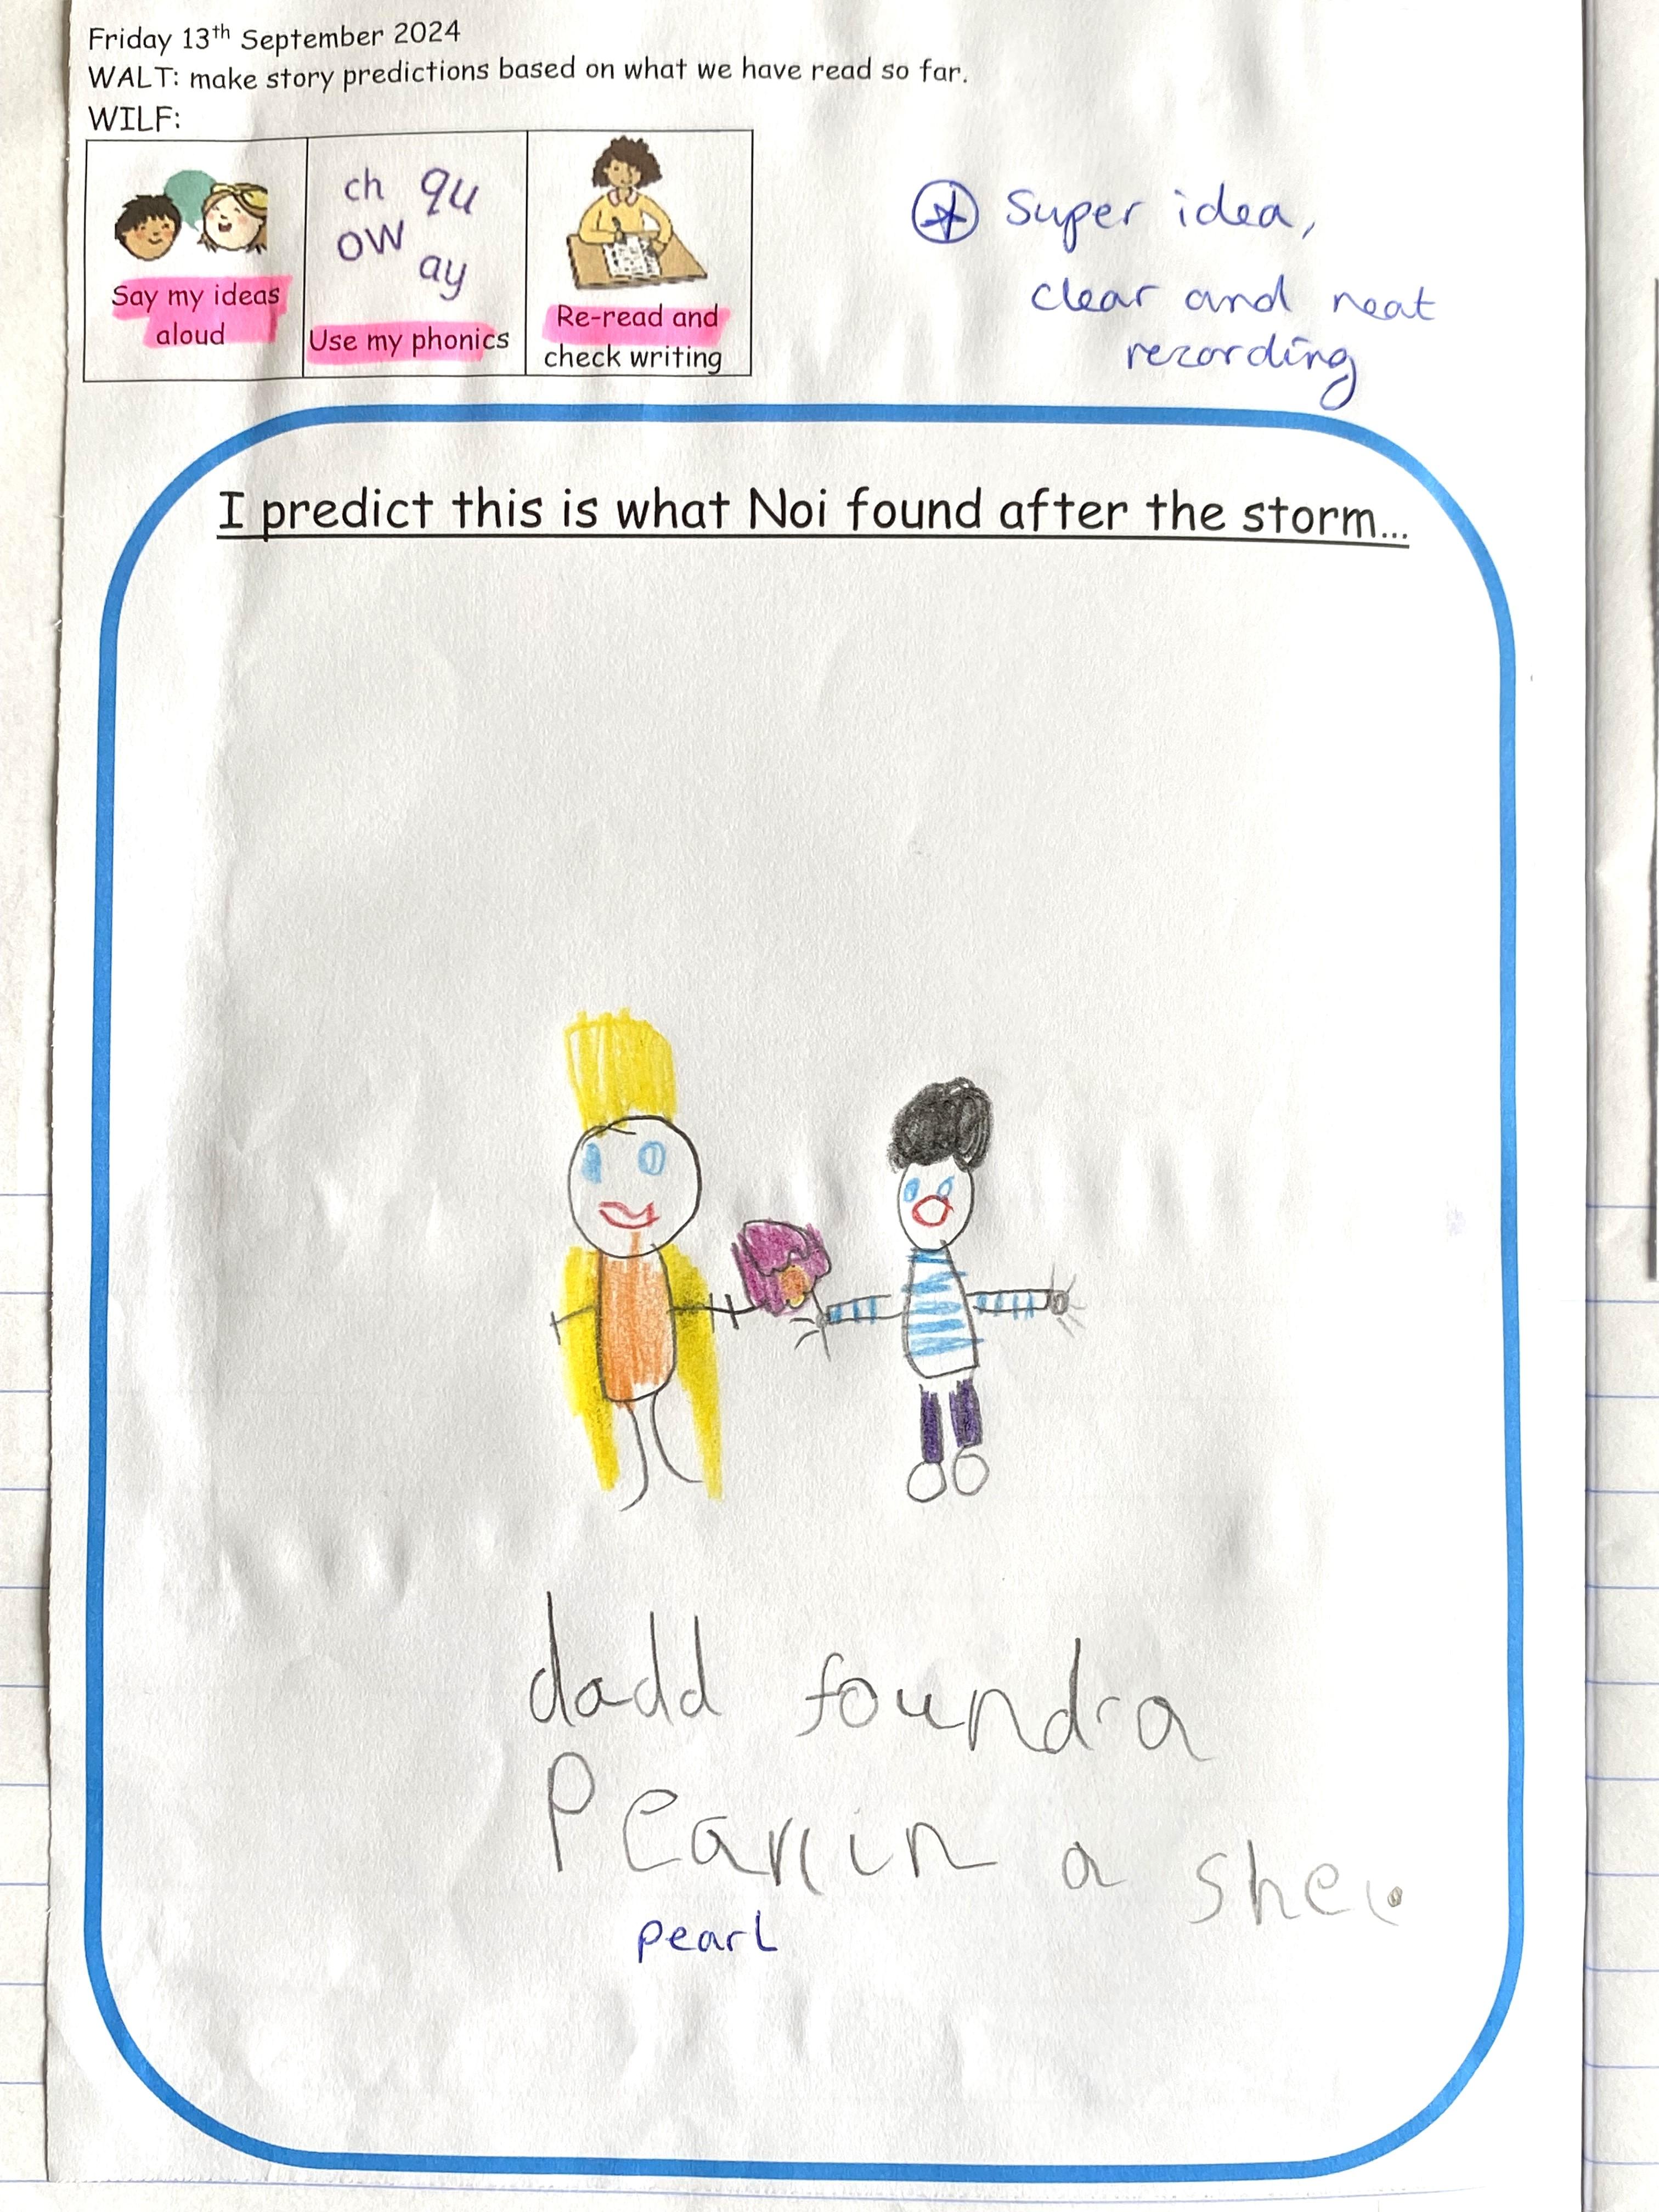 Friday 13th September 2024
WALT: make story predictions based on what we have read so far.
WILF:
ch qu
ow
ay
Say my ideas
aloud
Use my phonics
Re-read and
check writing
Super idea,
clear and neat
recording
I predict this is what Noi found after the storm...
dadd found a
Pearl in a shel.
pearl